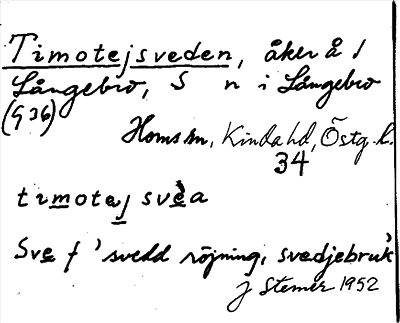 Timotejsveden, åker å /
Långebro, S n i Långebro
(§36)
Homs sn, Kinda hd, Östg. l.
34
timotej svèa
Sve f 'svedd röjning, svedjebruk'
J Stemer 1952